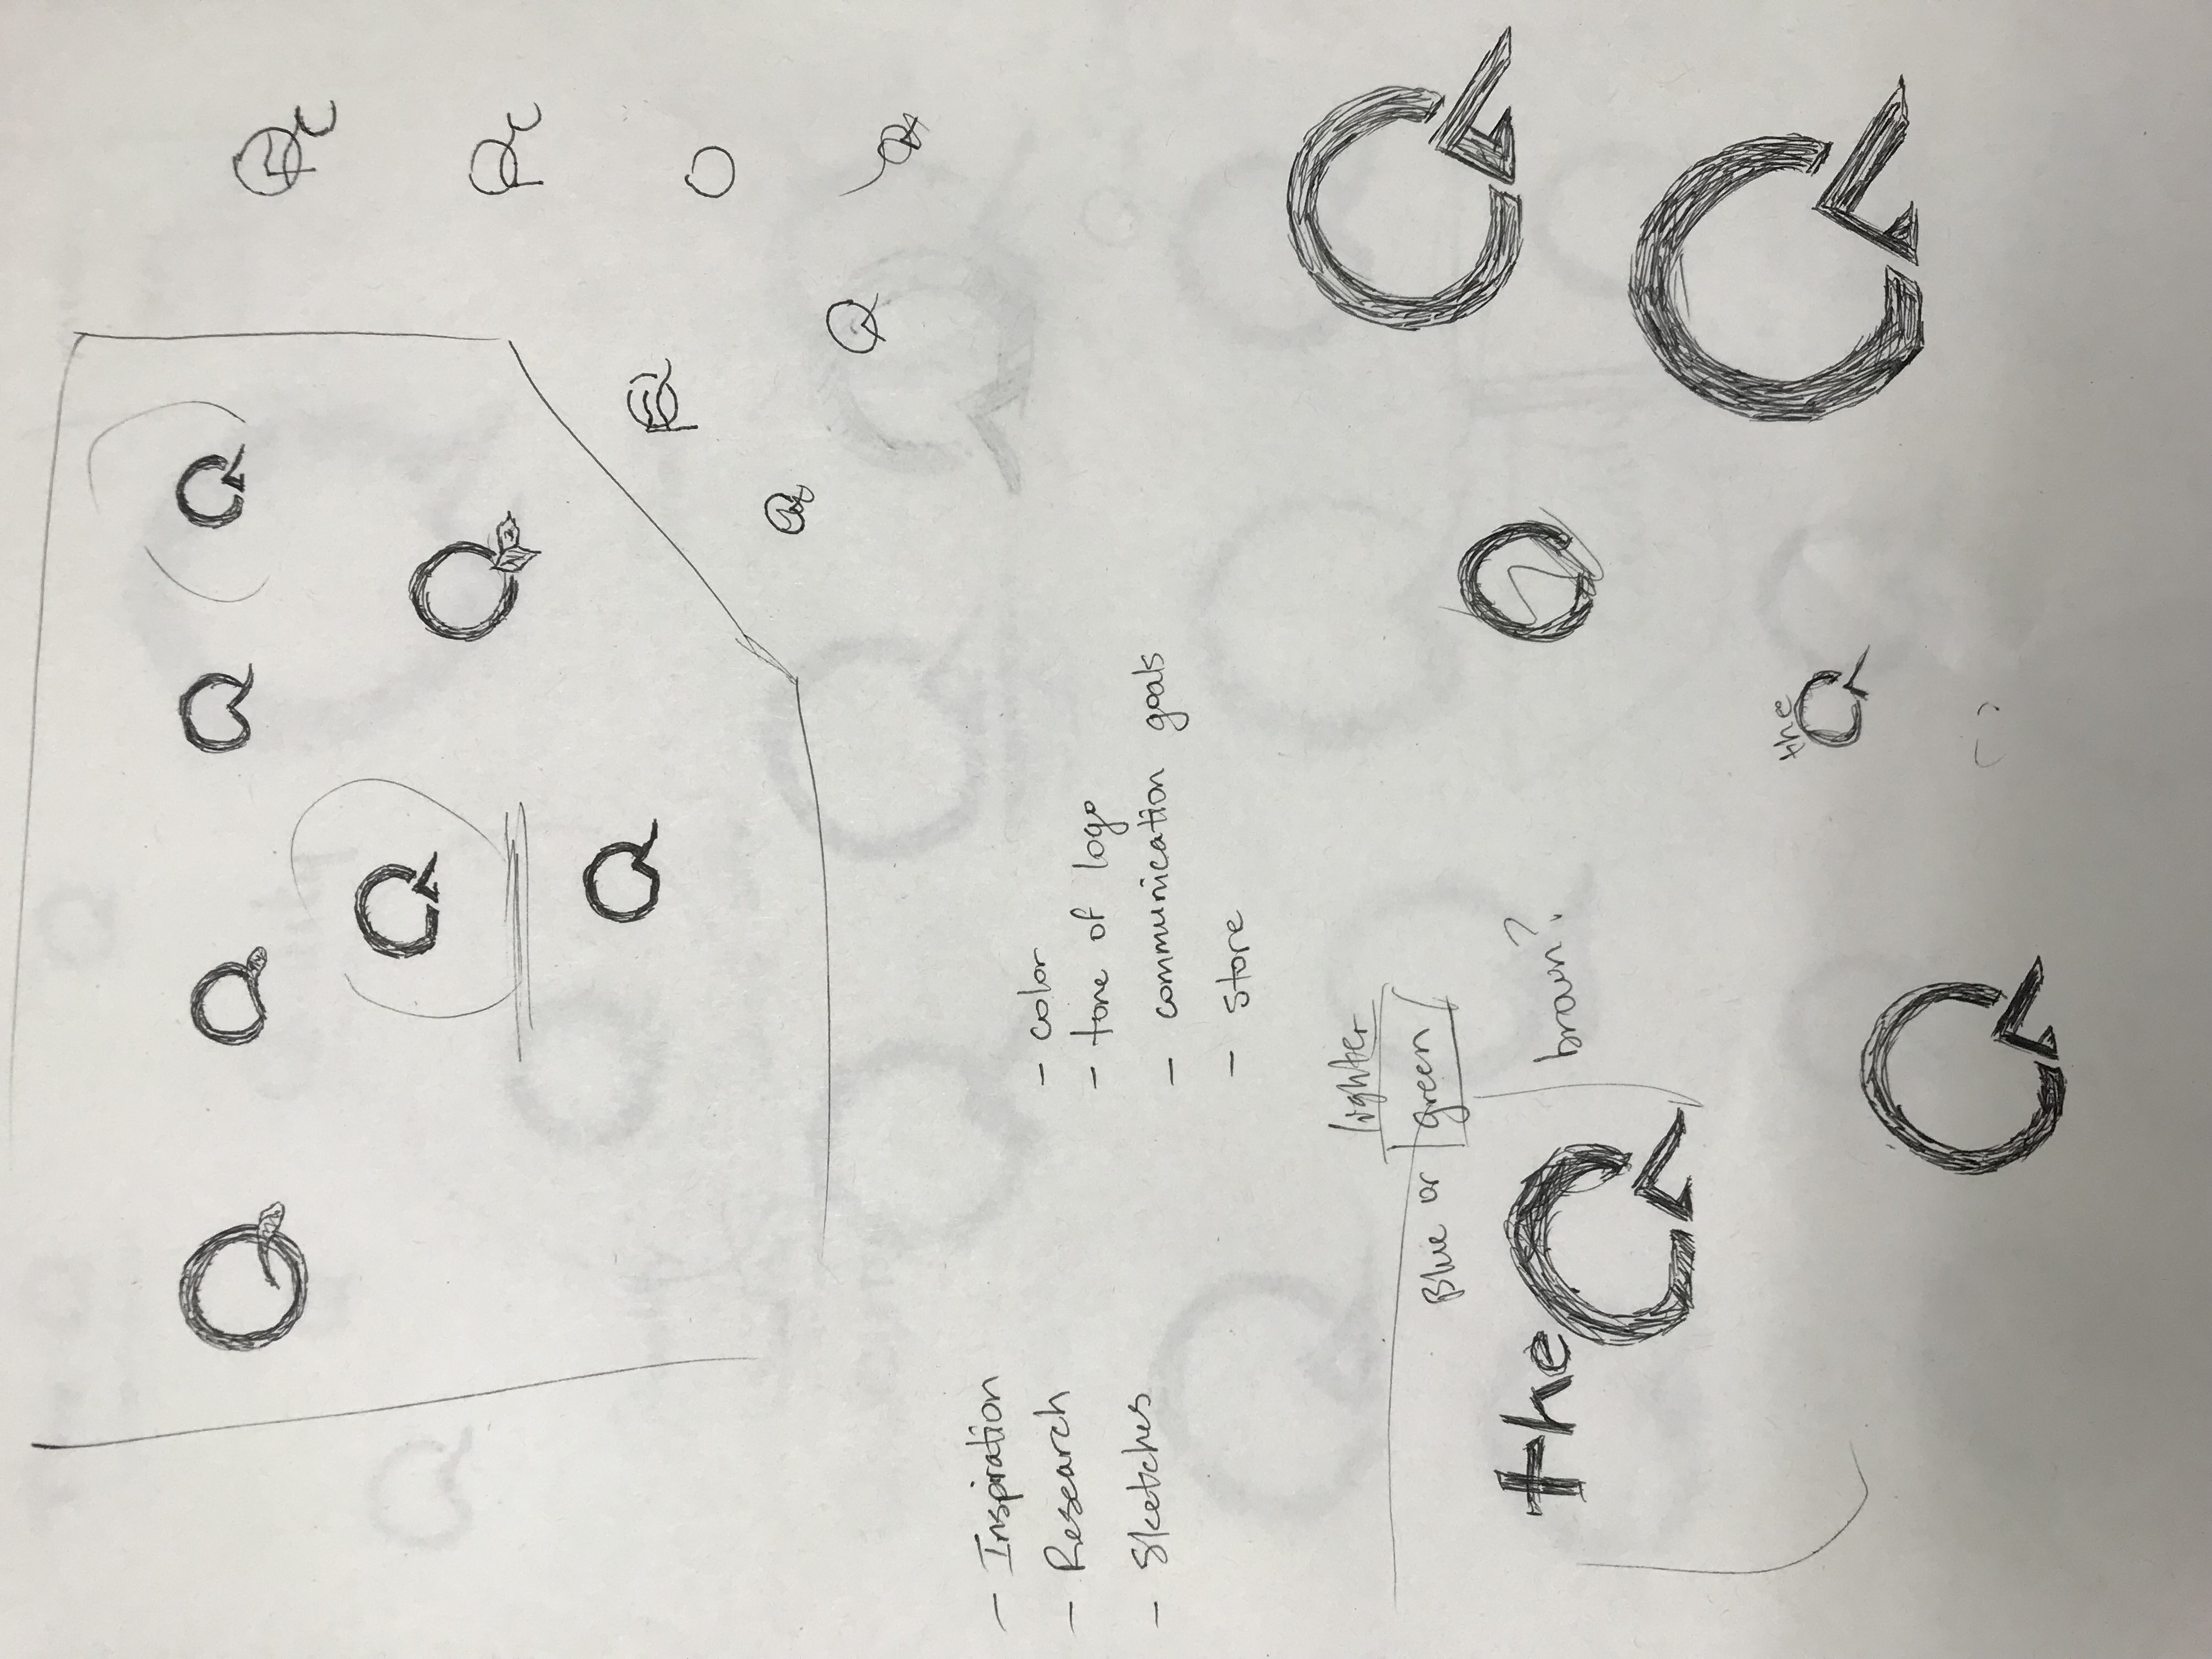 Q Q Q Q
Q Q
Q
- Inspiration
- Research
- Sketches
- color
- tone of logo
- communication goals
- store
lighter
Blue or green
the Q
brown?
Q
Q
the
Q
Q
Q